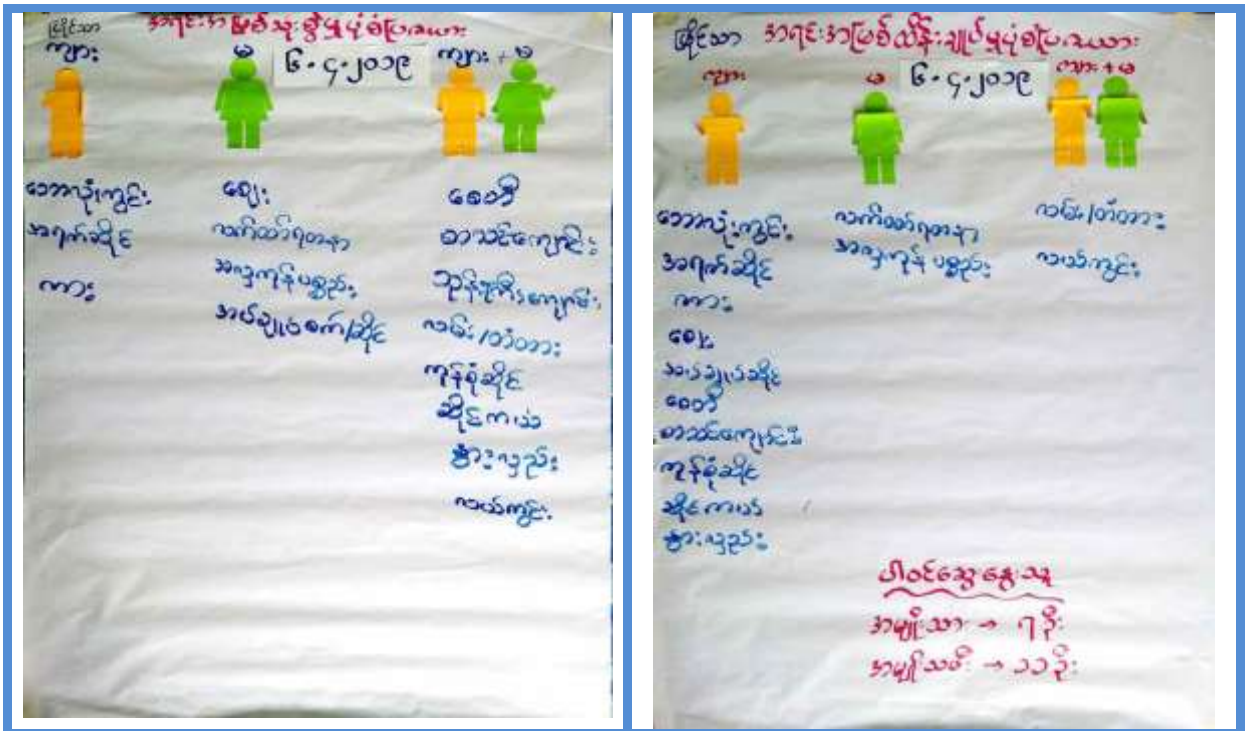 မြိုင်သာ အရင်းအမြစ်သုံးစွဲမှုပုံစံပြဇယား
ကျား မ ၆.၄.၂၀၁၉ ကျား + မ
ဘောလုံးကွင်း
အရက်ဆိုင်
ကား
ဈေး
လက်ထပ်ရတနာ
အလှကုန်ပစ္စည်း
အပ်ချုပ်စက်/ဆိုင်
စေတီ
စာသင်ကျောင်း
ဘုန်းကြီးကျောင်း
လမ်း/တံတား
ကုန်စုံဆိုင်
ဆိုင်ကယ်
နွားလှည်း
လယ်ကွင်း
မြိုင်သာ အရင်းအမြစ်ထိန်းချုပ်မှုပုံစံပြဇယား
ကျား မ ၆.၄.၂၀၁၉ ကျား + မ
ဘောလုံးကွင်း
အရက်ဆိုင်
ကား
ဈေး
အပ်ချုပ်ဆိုင်
စေတီ
စာသင်ကျောင်း
ကုန်စုံဆိုင်
ဆိုင်ကယ်
နွားလှည်း
အလှကုန်ပစ္စည်း
လမ်း/တံတား
လယ်ကွင်း
ပါဝင်ဆွေးနွေးသူ
အမျိုးသား → ၇ ဦး
အမျိုးသမီး → ၁၁ ဦး